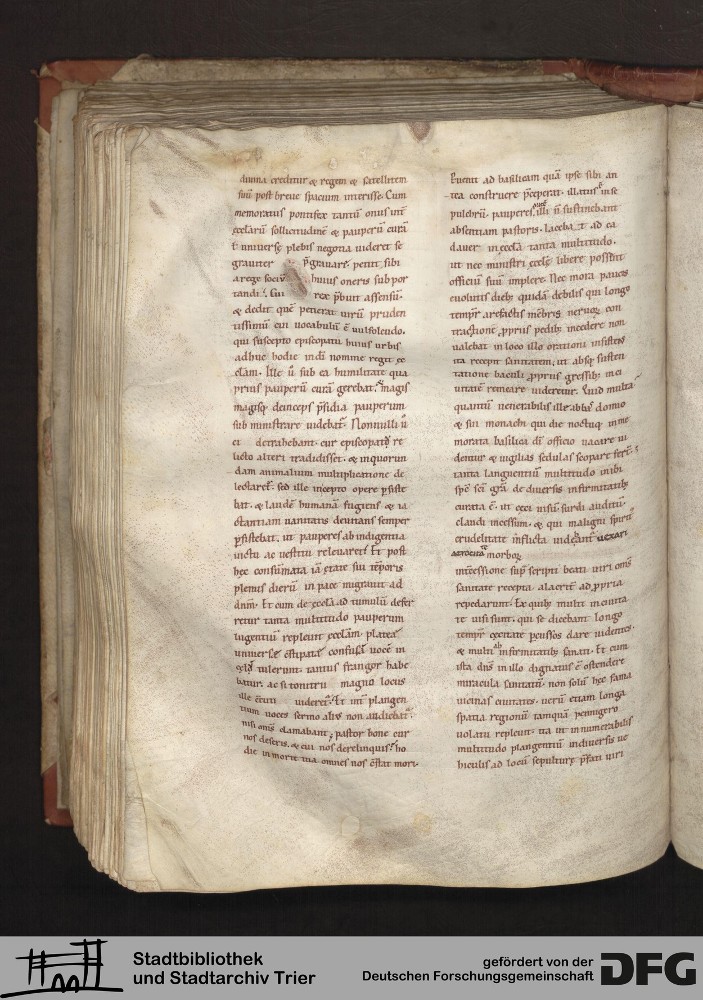 diuina creditur & regem & satellitem
suū post breue spacium interisse. Cum
memoratus pontifex tantū onus int̄
ęcclarū sollicitudinē & pauperū curā
& uniuersę plebis negotia uideret se
grauiter p̄grauare. petiit sibi
a rege sociū huius oneris subpor
tandi. Cui rex p̄buit assensū.
& dedit quē petierat uirū pruden
tissimū cui uocabulū ē uulfoleudo.
qui suscepto episcopatu huius urbis
adhuc hodie indi nomine regit ęc
clam. Ille ū sub ea humilitate qua
prius pauperū curā gerebat. magis
magisq; deinceps p̄sidia pauperum
sub ministrare uidebat̄. Nonnulli ū
ei detrahebant. cur episcopatū re
licto alteri tradidisset. & in quorun
dam animalium multiplicatione de
lectaret̄. sed ille incepto opere p̄siste
bat. & laudē humanā fugiens & ia
ctantiam uanitatis deuitans semper
p̄sistebat. ut pauperes ab indigentia
uictu ac uestitu releuaret. Et post
hęc consūmata iā ętate sui tēporis
plenus dierū in pace migrauit ad
dn̄m. Et cum de ęccl̄a ad tumulū defer
retur tanta multitudo pauperum
lugentiū repleuit ęccl̄am. plateę
uniuersę cōstipatę confusā uocē in
cęlū tulerunt. tantus frangor habe
batur. ac si tonitru magno locus
ille ēcuti uideret̄. Et int̄ plangen
tium uoces sermo alius non audiebat̄.
nisi om̄s clamabant; pastor bone cur
nos deseris. & cui nos derelinquis? ho
die in morte tua omnes nos cōstat mori.
Euenit ad basilicam quā ipse sibi an
tea construere p̄ceperat. illatus ē in se
pulchrū. pauperes illi ū sustinebant
absentiam pastoris. Iacebat ad ea
dauer in ęccl̄a tanta multitudo.
ut nec ministri ęccl̄ę libere possēnt
officiū suū implere. Nec mora paucis
euolutis dieb; quidā debilis qui longo
tempr̄ arefactis mēbris neruoꝝ con
tractione. p̄priis pedib; incedere non
ualebat in loco illo orationi insistens
ita recepit sanitatem. ut absq; susten
tatione baculi p̄priis gressib; inci
uitatē remeare uideretur. Quid multa
quantū uenerabilis ille abbas domno
& sui monachi qui die noctuq; in me
morata basilica dī officio uacare ui
dentur & uigilias sedulas
tanta languentiū multitudo inibi
sp̄c sc̄i grā de diuersis infirmitatib;
curata ē. ut ceci uisū. surdi auditū.
claudi incessum. & qui maligni sp̄ritꝰ
crudelitate inflicta uidebant̄ uexari
morboꝝ
int̄cessione sup̄ scripti beati uiri om̄s
sanitate recepta alacrit̄ ad p̄pria
repedarunt. Ex quib; multi in ciuita
te uisi sunt. qui se dicebant longo
tempr̄ cęcitate p̄cussos dare uidentes.
& multi ab infirmitatib; sanati. Et cum
ista dn̄s in illo dignatus ē ostendere
miracula sanitatū. non solū hęc fama
uicinas ciuitates. uerū etiam longa
spatia regionū tamquā pennigero
uolatu repleuit. ita ut innumerabilis
multitudo plangentiū in diuersis ue
hiculis ad locū sepulturę p̄fati uiri
Stadtbibliothek
und Stadtarchiv Trier
gefördert von der
Deutschen Forschungsgemeinschaft
DFG